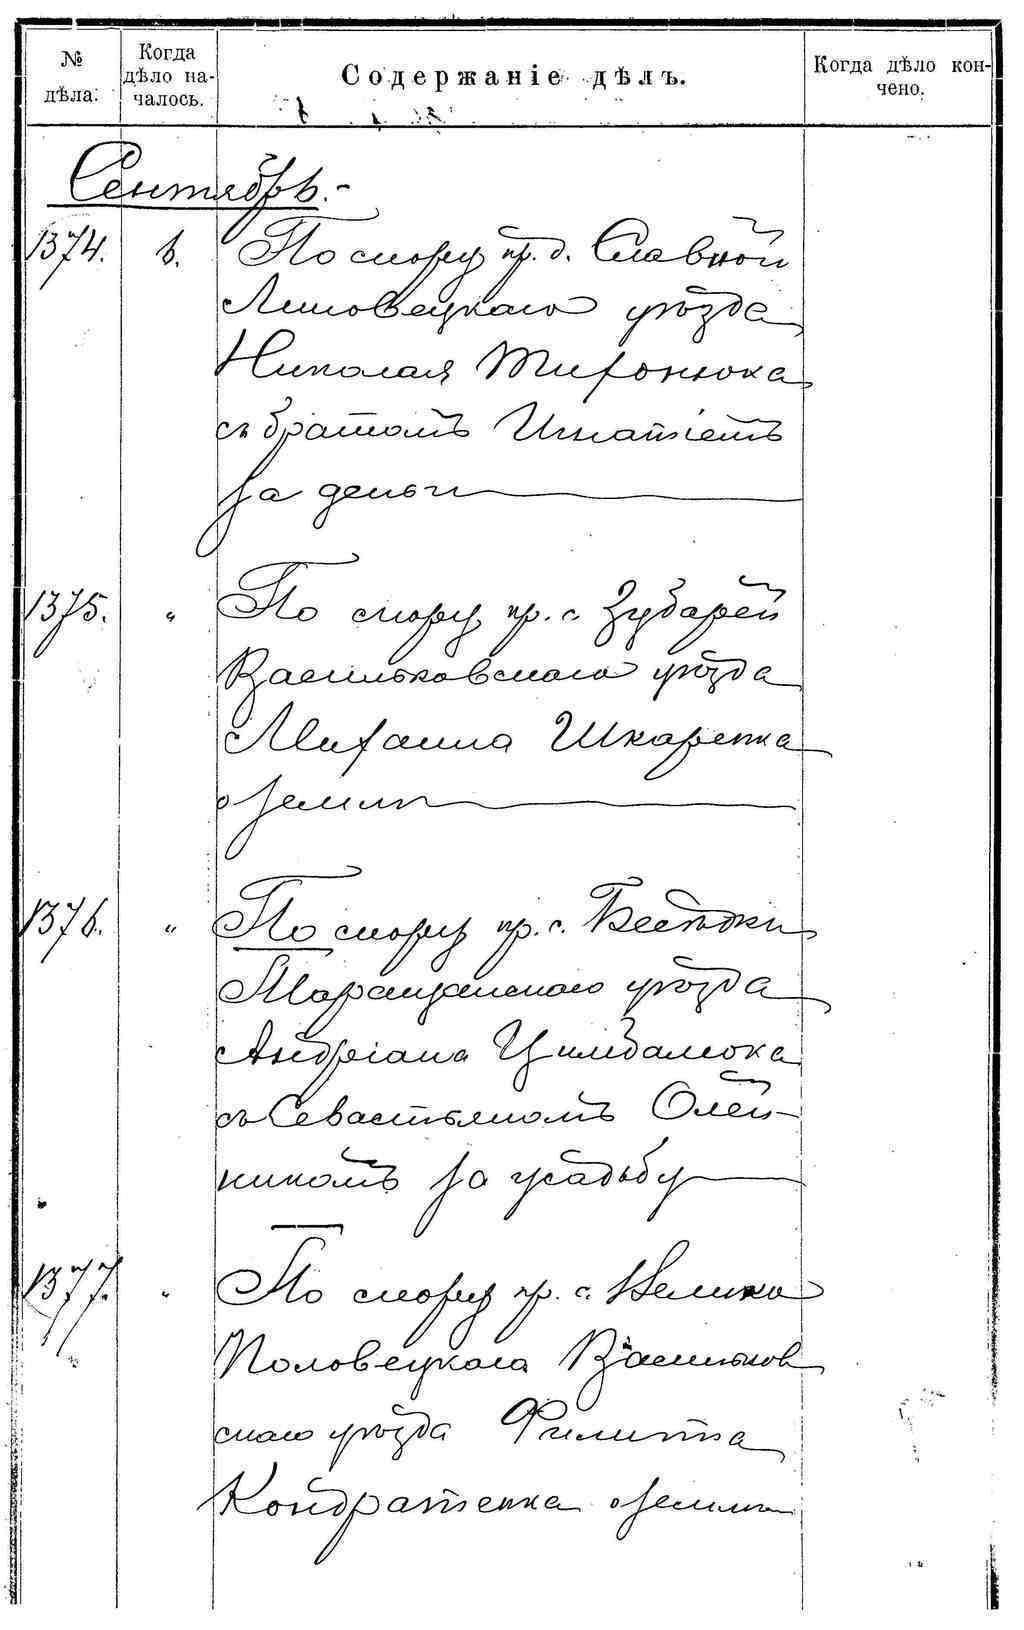 № дѣла.
Когда дѣло на-
чалось.
Содержаніе дѣлъ.
Когда дѣло кон-
чено.
Сентябрь.-
1374. 6. По спору кр. д. Славной
Липовецкаго уѣзда
Николая Тихонюка
съ братомъ Игнатіемъ
за деньги
1375. " По спору кр. с. Зубарей
Васильковскаго уѣзда
Михаила Шкарепка
о земли
1376. " По спору кр. с. Бестѣжки
Таращанскаго уѣзда
Андріана Цимбалюка
съ Севастьяномъ Олей-
никомъ за усадьбу
1377. " По спору кр. с. Велико
Половецкаго Васильков
скаго уѣзда Филиппа
Кондратенка о земли